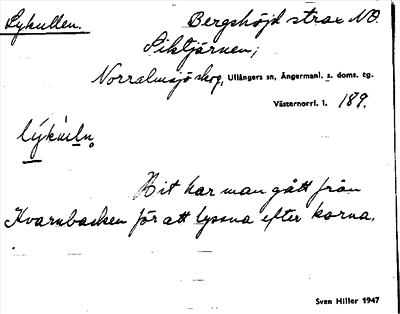 Lykullen. Bergshöjd strax NO.
Siktjärnen;
Norralmsjö skog, Ullångers sn, Ångermanl. s. doms. tg.
Västernorrl. l. 189.
lýkùln.
Hit har man gått från
Kvarnbacken för att lyssna efter korna.
Sven Hiller 1947